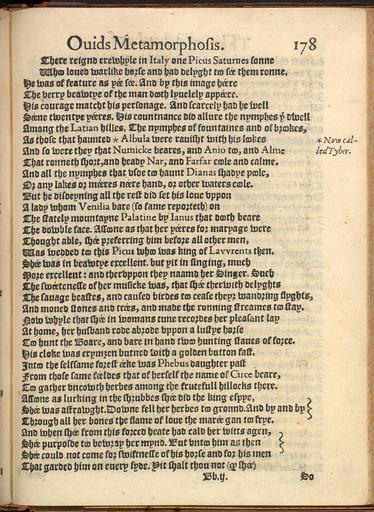 Ouids Metamorphosis. 178
There reignd erewhyle in Italy one Picus Saturnes sonne
Who loued warlike horse and had delyght to sée them ronne.
He was of feature as yée sée. And by this image héere
The verry beawtye of the man dooth lyuelely appéere.
His courage matcht his personage. And scarcely had he well
Séene twentye yéeres. His countnance did allure the nymphes ẏ dwell
Among the Latian hilles. The nymphes of fountaines and of brookes,
As those that haunted * Albula were rauisht with his lookes
* Now cal-
led Tyber.
And so were they that Numicke beares, and Anio too, and Alme
That ronneth short, and heady Nar, and Farfar coole and calme.
And all the nymphes that vsde too haunt Dianas shadye poole,
Or any lakes or méeres néere hand, or other waters coole.
But he disdeyning all the rest did set his loue vppon
A lady whom Venilia bare (so fame reporteth) on
The stately mountayne Palatine by Ianus that dooth beare
The dowble face. Assoone as that her yéeres for maryage were
Thought able, shée preferring him before all other men,
Was wedded to this Picus who was king of Lavvrents then.
Shée was in beawtye excellent. but yit in singing, much
More excellent: and therevppon they naamd her Singer. Such
The swéetenesse of her musicke was, that shée therwith delyghts
The sauage beastes, and caused birdes too cease theyr wandring flyghts,
And moued stones and trées, and made the ronning streames too stay.
Now whyle that shée in womans tune recordes her pleasant lay
At home, her husband rode abrode vppon a lustye horse
Too hunt the Boare, and bare in hand twoo hunting staues of force.
His cloke was crymzen butned with a golden button fast.
Intoo the selfsame forest éeke was Phebus daughter past
From those same féeldes that of herself the name of Circe beare,
Too gather vncowth herbes among the frutefull hillocks there.
Assone as lurking in the shrubbes shée did the king espye,
Shée was astrawght. Downe fell her herbes too ground. And by and by
Through all her bones the flame of loue the maree gan too frye.
And when shée from this forced heate had cald her witts agen,
Shée purposde too bewray her mynd. But vntoo him as then
Shée could not come for swiftnesse of his horse and for his men
That garded him on euery syde. Yit shalt thou not (ꝙ shée)
Bb.ij. So